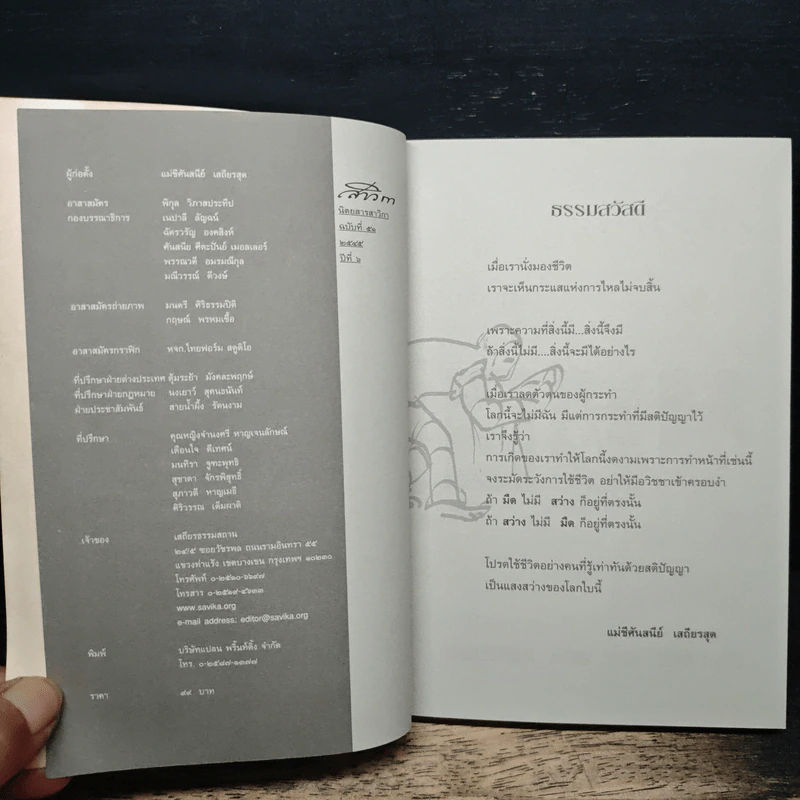 ผู้ก่อตั้ง แม่ชีศันสนีย์ เสถียรสุต
อาสาสมัคร พิกุล วิภาสประทีป
กองบรรณาธิการ เนปาลี ลัญฉน์
ฉัตรวรัญ องคสิงห์
ศันสนีย ศีตะปันย์ เมอลเลอร์
พรรณวดี อมรมณีกุล
มณีวรรณ์ ดีวงษ์
อาสาสมัครถ่ายภาพ มนตรี ศิริธรรมปิติ
กฤษณ์ พรหมเชื้อ
อาสาสมัครกราฟิก หจก.ไทยฟอร์ม สตูดิโอ
ที่ปรึกษาฝ่ายต่างประเทศ ตุ้มระย้า มังคละพฤกษ์
ที่ปรึกษาฝ่ายกฎหมาย นงเยาว์ สุคนธนันท์
ฝ่ายประชาสัมพันธ์ สายน้ำผึ้ง รัตนงาม
ที่ปรึกษา คุณหญิงจำนงศรี หาญเจนลักษณ์
เตือนใจ ดีเทศน์
มนทิรา จูฑะพุทธิ
สุชาดา จักรพิสุทธิ์
สุภาวดี หาญเมธี
ศิริวรรณ เต็มผาติ
เจ้าของ เสถียรธรรมสถาน
๒๔/๕ ซอยวัชรพล ถนนรามอินทรา ๕๕
แขวงท่าแร้ง เขตบางเขน กรุงเทพฯ ๑๐๒๓๐
โทรศัพท์ ๐-๒๕๑๐-๖๖๙๗
โทรสาร ๐-๒๕๑๙-๔๖๓๓
www.savika.org
e-mail address: editor@savika.org
พิมพ์ บริษัทแปลน พริ้นท์ติ้ง จำกัด
โทร. ๐-๒๕๘๗-๑๓๗๗
ราคา ๙๙ บาท
สาวิกา
นิตยสารสาวิกา
ฉบับที่ ๕๒
๒๕๔๕
ปีที่ ๖
ธรรมสวัสดี
เมื่อเรานั่งมองชีวิต
เราจะเห็นกระแสแห่งการไหลไม่จบสิ้น
เพราะความที่สิ่งนี้มี...สิ่งนี้จึงมี
ถ้าสิ่งนี้ไม่มี....สิ่งนี้จะมีได้อย่างไร
เมื่อเราลดตัวตนของผู้กระทำ
โลกนี้จะไม่มีฉัน มีแต่การกระทำที่มีสติปัญญาไว้
เราจึงรู้ว่า
การเกิดของเราทำให้โลกนี้งดงามเพราะการทำหน้าที่เช่นนี้
จงระมัดระวังการใช้ชีวิต อย่าให้มีอวิชชาเข้าครอบงำ
ถ้า มืด ไม่มี สว่าง ก็อยู่ที่ตรงนั้น
ถ้า สว่าง ไม่มี มืด ก็อยู่ที่ตรงนั้น
โปรดใช้ชีวิตอย่างคนที่รู้เท่าทันด้วยสติปัญญา
เป็นแสงสว่างของโลกใบนี้
แม่ชีศันสนีย์ เสถียรสุต